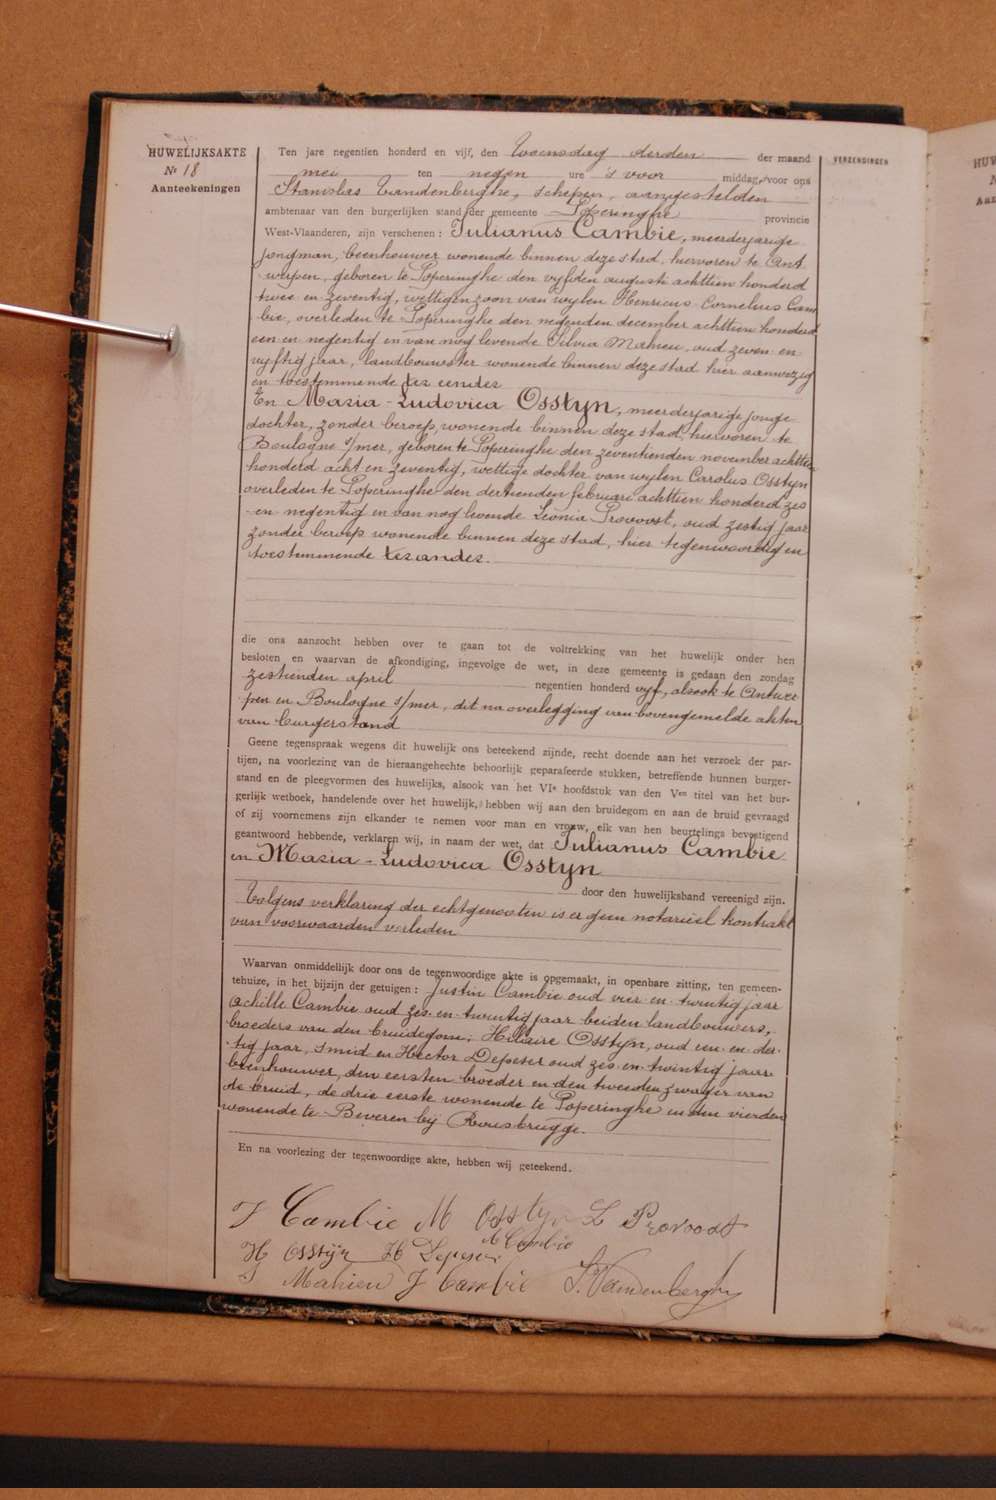 HUWELIJKSAKTE
Nr 18
Aanteekeningen
VERZENDINGEN
Ten jare negentien honderd en vijf, den Woensdag derden der maand
mei ten negen ure 's voor middag, voor ons
Stanislas Vandenberghe, schepen, aangestelden
ambtenaar van den burgerlijken stand der gemeente Poperinghe provincie
West-Vlaanderen, zijn verschenen: Julianus Cambie, meerderjarige
jongman, beenhouwer wonende binnen deze stad, hiervoren te Ant
werpen, geboren te Poperinghe den vyfden augusti achttien honderd
twee en zeventig, wettigen zoon van wylen Henricus Cornelius Cam
bie, overleden te Poperinghe den negenden december achttien honderd
een en negentig en van nog levende Silvia Mahieu, oud zeven en
vyftig jaar, landbouwster wonende binnen deze stad hier aanwezig
en toestemmende ter eender
En Maria-Ludovica Osstyn, meerderjarige jonge
dochter, zonder beroep, wonende binnen deze stad, hiervoren te
Boulogne s/mer, geboren te Poperinghe den zeventienden november achttien
honderd acht en zeventig, wettige dochter van wylen Carolus Osstyn
overleden te Poperinghe den dertienden februari achttien honderd zes
en negentig en van nog levende Leonia Provoost, oud zestig jaar
zonder beroep wonende binnen deze stad, hier tegenwoordig en
toestemmende ter ander.
die ons aanzocht hebben over te gaan tot de voltrekking van het huwelijk onder hen
besloten en waarvan de afkondiging, ingevolge de wet, in deze gemeente is gedaan den zondag
zestienden april negentien honderd vyf, alsook te Antwer
pen en Boulogne s/mer, dit na overlegging van bovengemelde akten
van burgerstand
Geene tegenspraak wegens dit huwelijk ons beteekend zijnde, recht doende aan het verzoek der par-
tijen, na voorlezing van de hieraangehechte behoorlijk geparafeerde stukken, betreffende hunnen burger-
stand en de pleegvormen des huwelijks, alsook van het VIe hoofdstuk van den Ven titel van het bur-
gerlijk wetboek, handelende over het huwelijk, hebben wij aan den bruidegom en aan de bruid gevraagd
of zij voornemens zijn elkander te nemen voor man en vrouw, elk van hen beurtelings bevestigend
geantwoord hebbende, verklaren wij, in naam der wet, dat Julianus Cambie
en Maria-Ludovica Osstyn
door den huwelijksband vereenigd zijn.
Volgens verklaring der echtgenooten is er geen notarieel kontrakt
van voorwaarden verleden
Waarvan onmiddellijk door ons de tegenwoordige akte is opgemaakt, in openbare zitting, ten gemeen-
tehuize, in het bijzijn der getuigen: Justin Cambie oud vier en twintig jaar
Achille Cambie oud zes en twintig jaar beiden landbouwers,
broeders van den bruidegom; Hilaire Osstyn, oud een en der-
tig jaar, smid en Hector Depeser oud zes en twintig jaar
beenhouwer, den eersten broeder en den tweeden zwager van
de bruid, de drie eerste wonende te Poperinghe en den vierden
wonende te Beveren bij Rousbrugge.
En na voorlezing der tegenwoordige akte, hebben wij geteekend.
J Cambie M Osstyn L Provoost
A Cambie
H Osstyn H Depeser
S Mahieu J Cambie S. Vandenberghe
HUW
N
Aan